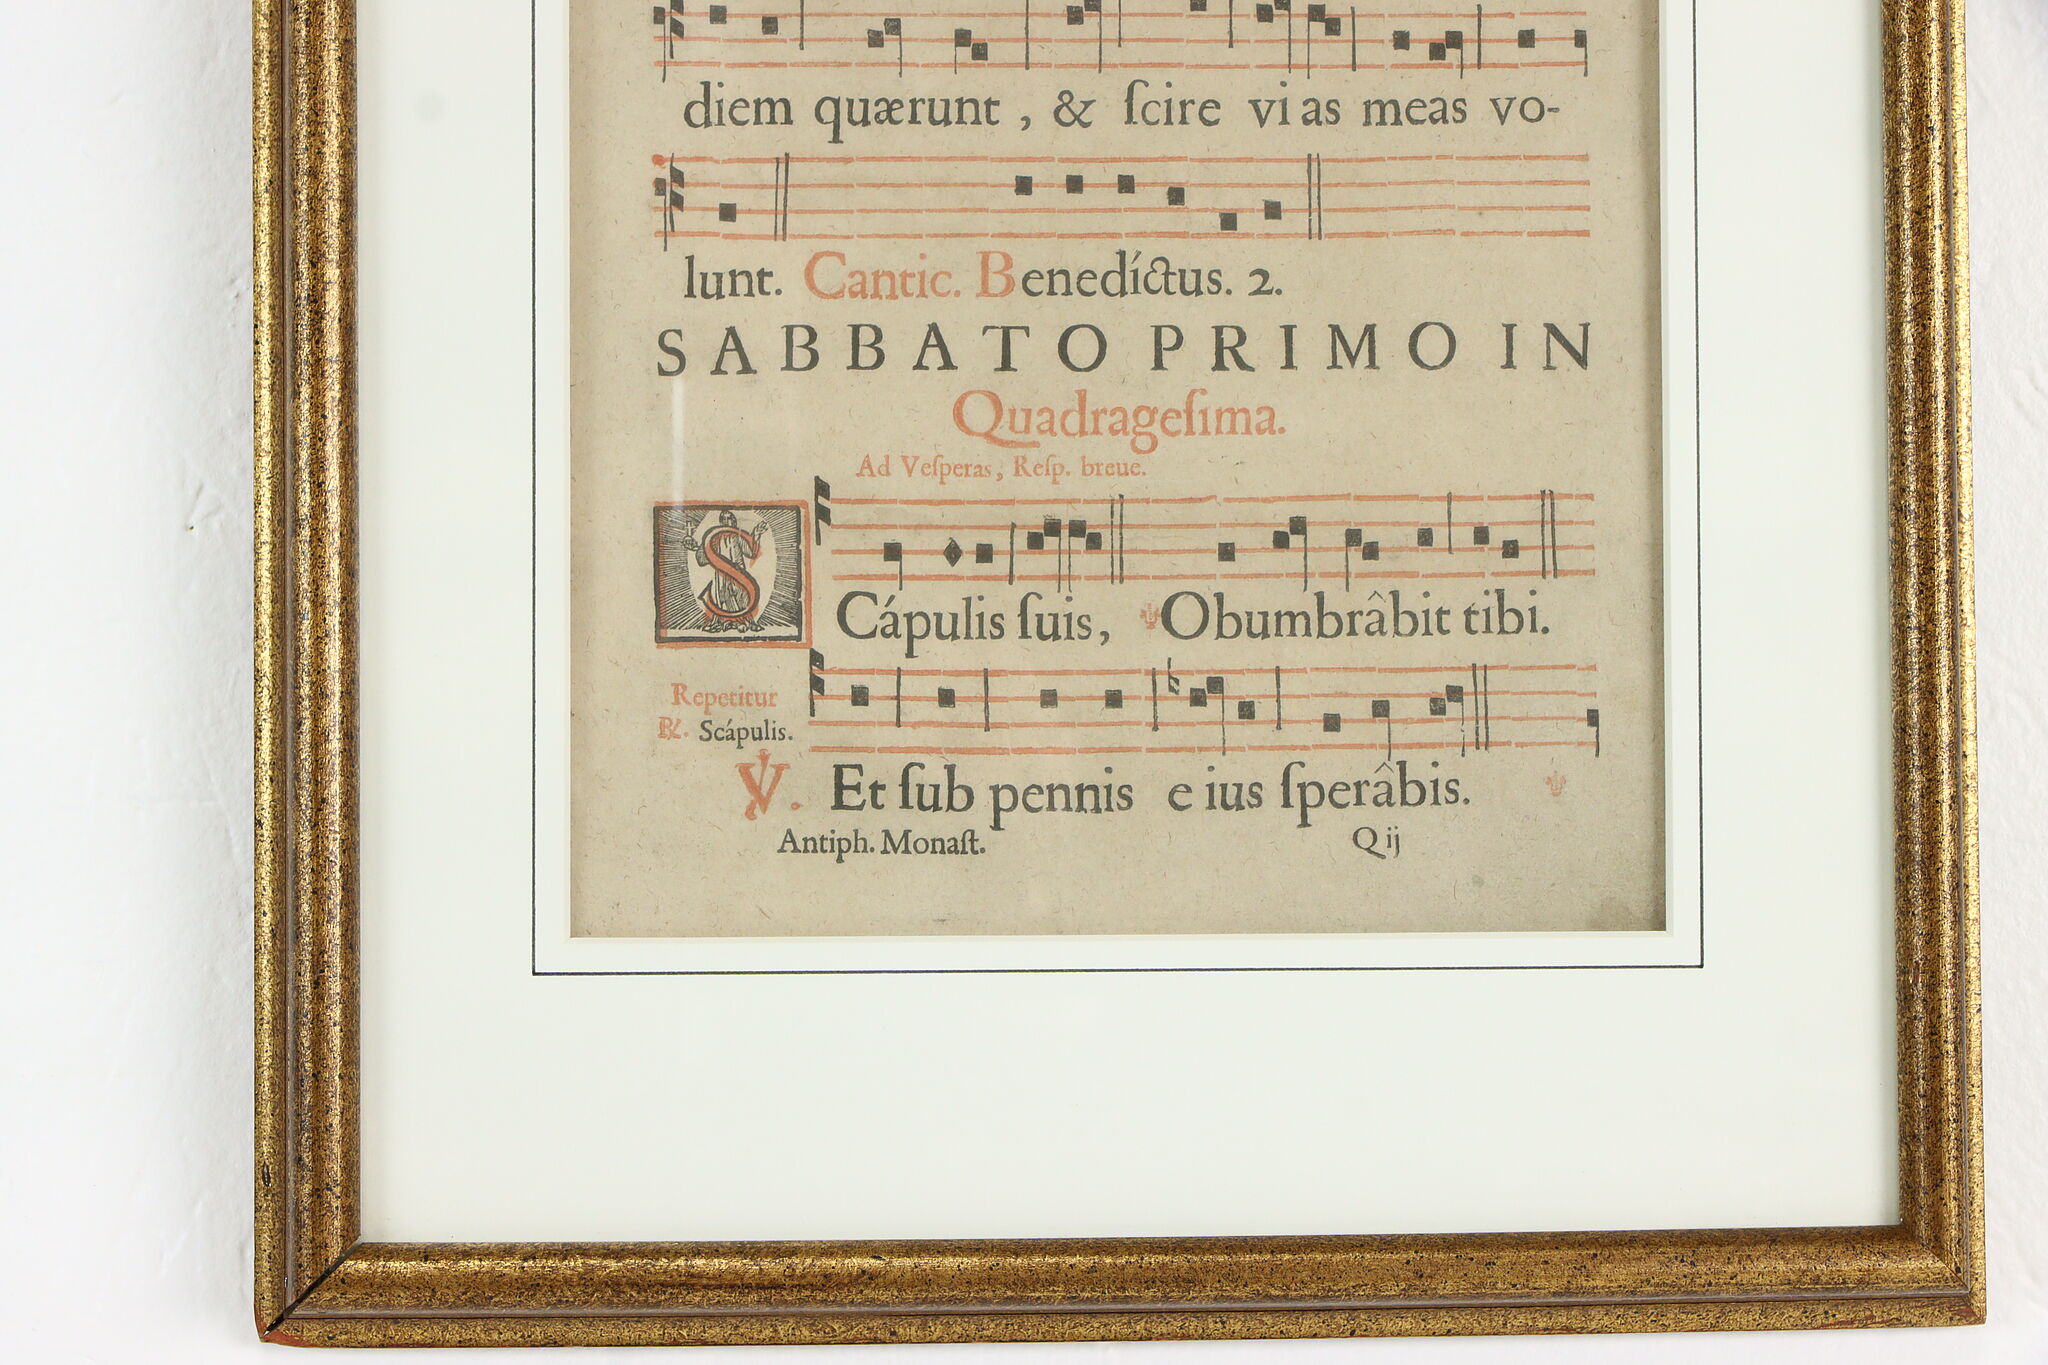 diem quærunt, & ſcire vias meas vo-
lunt. Cantic. Benedíctus. 2.
SABBATO PRIMO IN
Quadrageſima.
Ad Veſperas, Reſp. breue.
SCápulis ſuis, Obumbrâbit tibi.
Repetitur
℟. Scápulis.
℣. Et ſub pennis eius ſperâbis.
Antiph. Monaſt. Qij